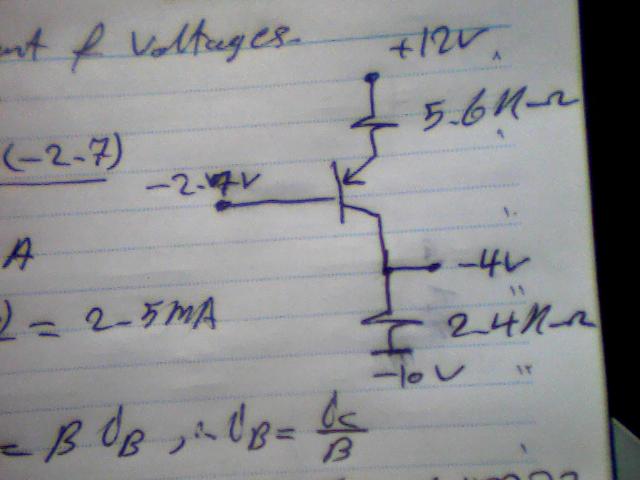 nt & Voltages.
+12V
5.6KΩ
(-2-7)
-2.7V
A
-4V
) = 2-5mA
2.4KΩ
-10V
= β IB, ∴ IB = Ic/β